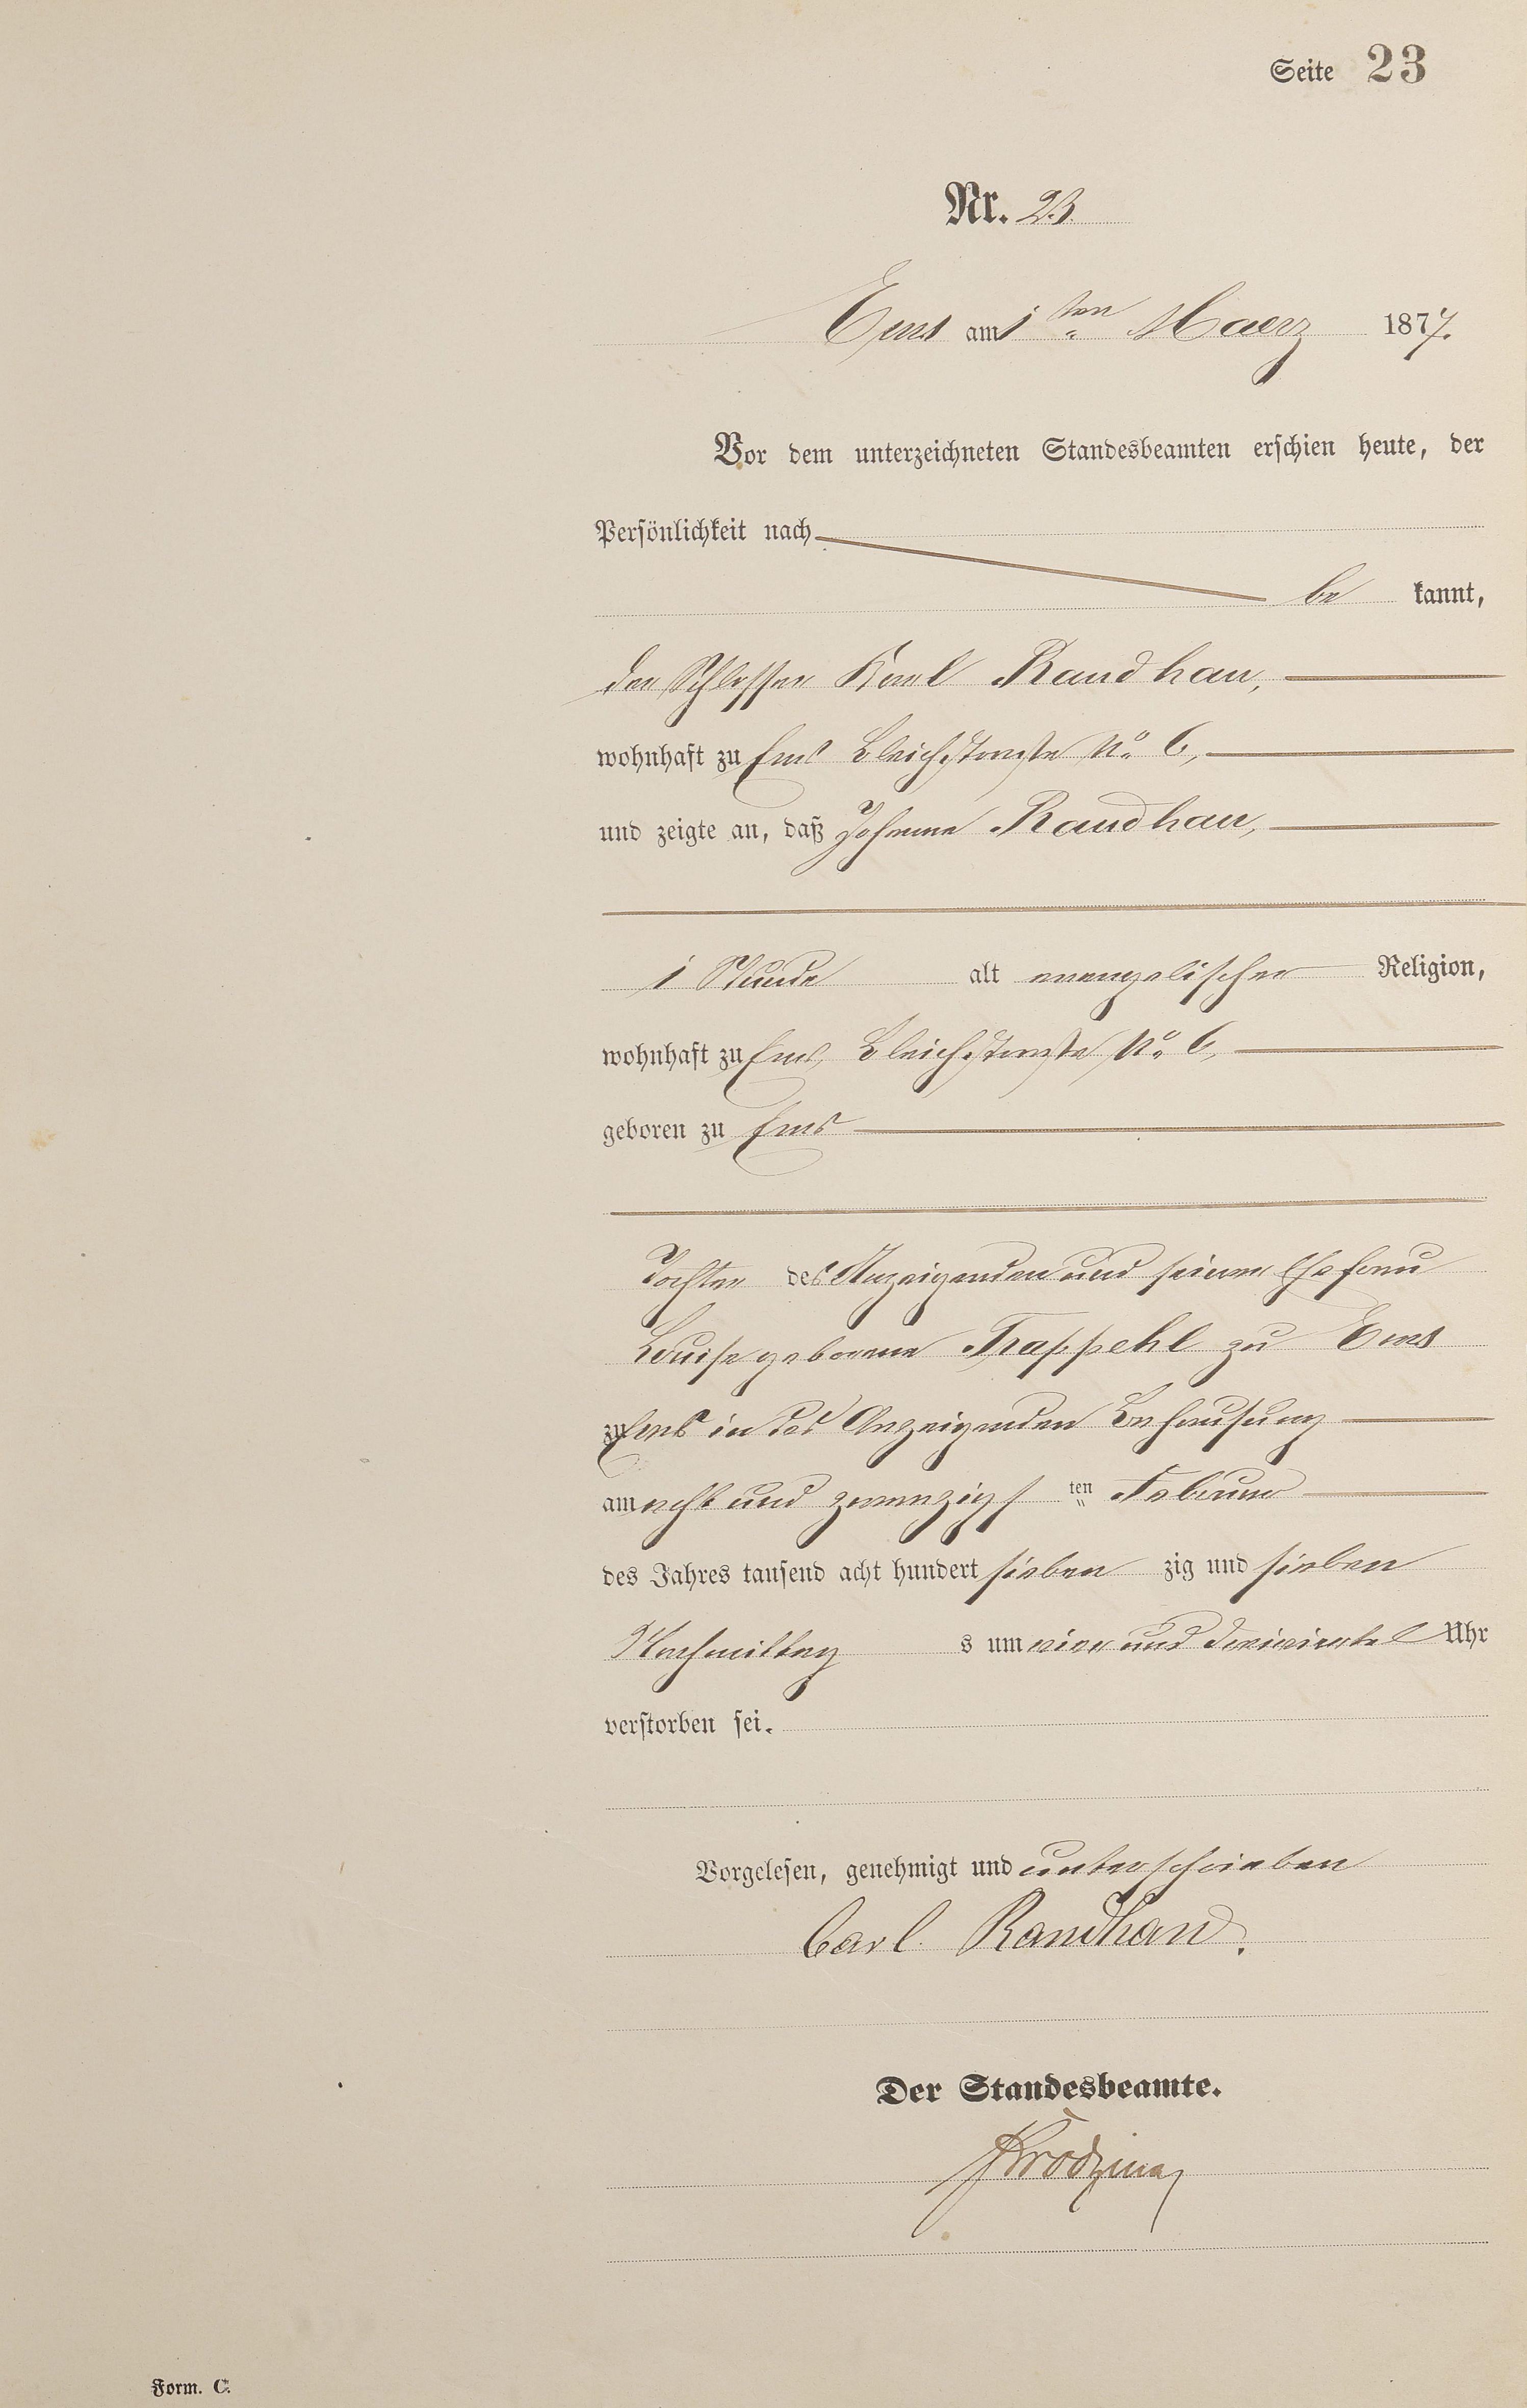 Seite 23
Nr. 23
Ems am 1ten Maerz 1877.
Vor dem unterzeichneten Standesbeamten erschien heute, der
Persönlichkeit nach
be kannt,
der Schlosser Karl Raudhau,
wohnhaft zu Ems Bleichstraße No 6,
und zeigte an, daß Johanna Raudhau,
1 Stunde alt evangelischer Religion,
wohnhaft zu Ems, Bleichstraße No 6,
geboren zu Ems
Tochter des Anzeigenden und seiner Ehefrau
Louise geborene Trappehl zu Ems
zu Ems in des Anzeigenden Behausung
am acht und zwanzigsten Februar
des Jahres tausend acht hundert sieben zig und sieben
Nachmittag s um vier und dreiviertel Uhr
verstorben sei.
Vorgelesen, genehmigt und unterschrieben
Carl Raudhau.
Der Standesbeamte.
Form. C.